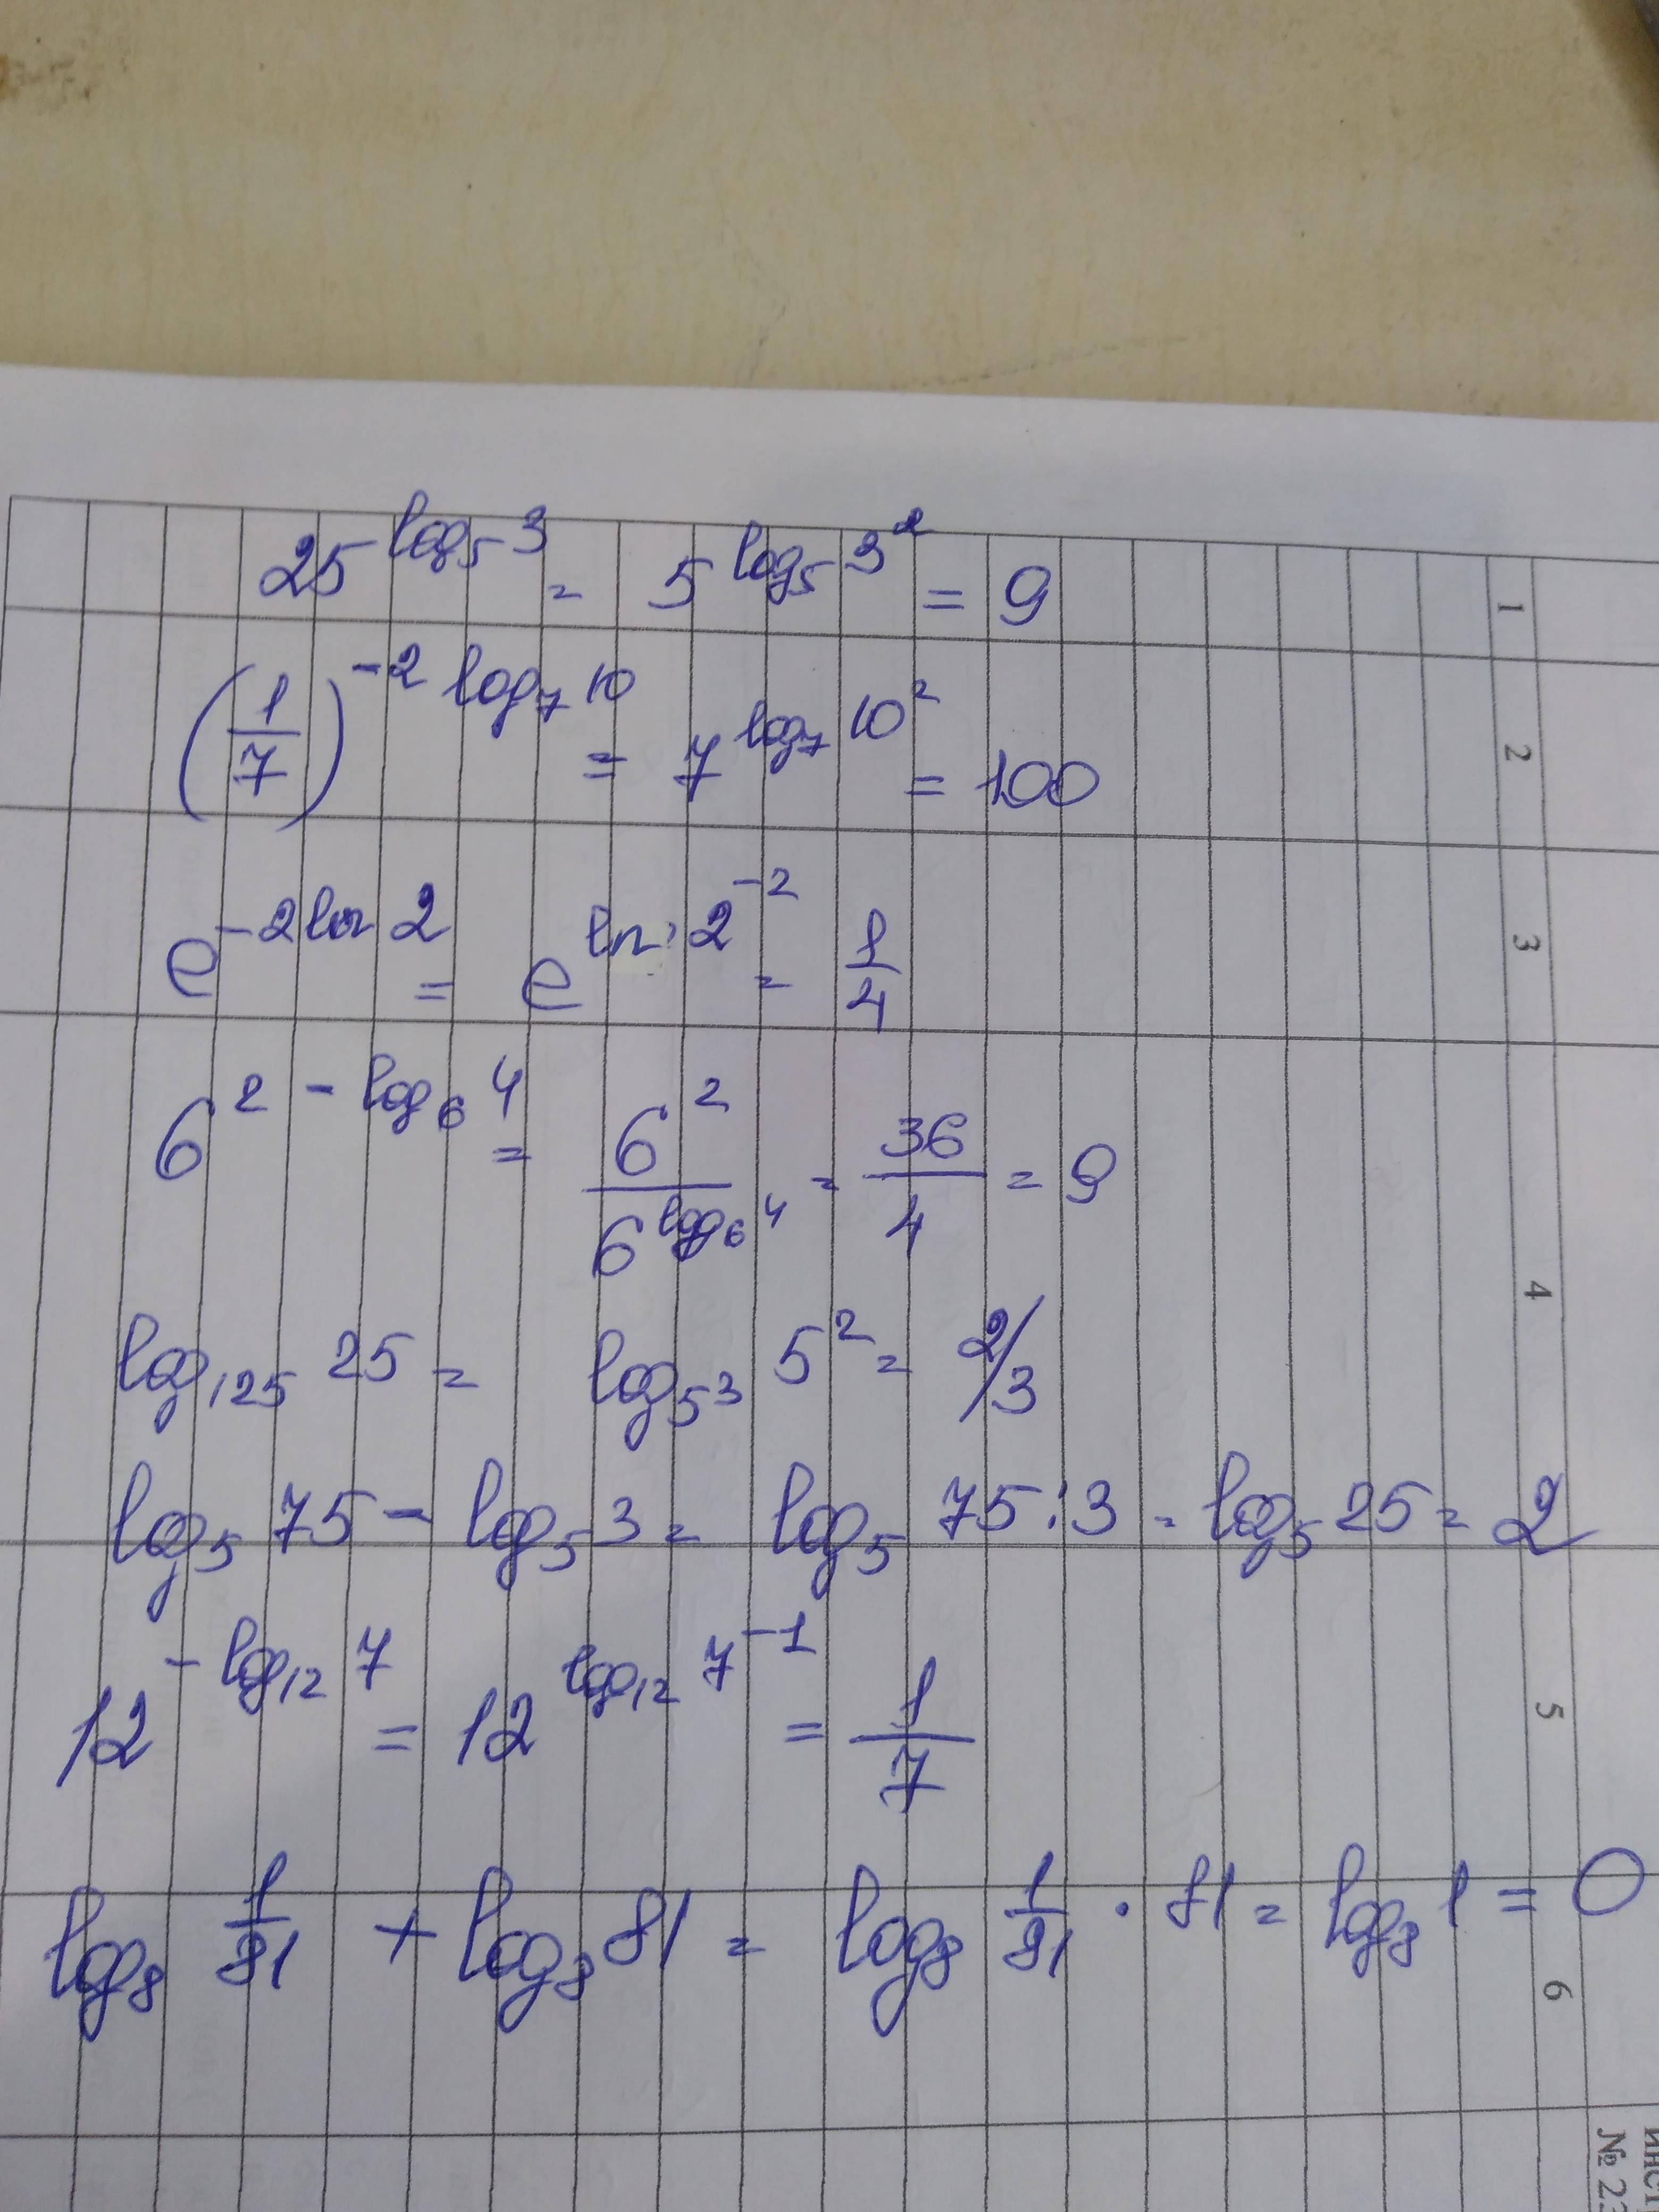 25^{log_5 3} = 5^{log_5 3^2} = 9
(1/7)^{-2 log_7 10} = 7^{log_7 10^2} = 100
e^{-2 ln 2} = e^{ln 2^{-2}} = 1/4
6^{2 - log_6 4} = 6^2/6^{log_6 4} = 36/4 = 9
log_{125} 25 = log_{5^3} 5^2 = 2/3
log_5 75 - log_5 3 = log_5 75:3 = log_5 25 = 2
12^{-log_{12} 7} = 12^{log_{12} 7^{-1}} = 1/7
log_8 1/81 + log_8 81 = log_8 1/81 · 81 = log_8 1 = 0
1
2
3
4
5
6
№ 23